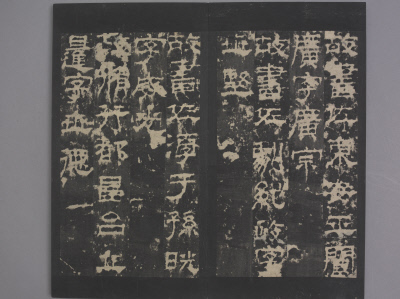 故書佐東安平閻
廣字廣宗
故書佐劇紀政字
堅
故書佐淳于孫晄
字威
故脩行都昌台丘
暹字